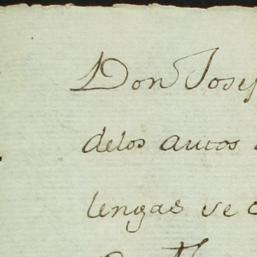 Don Josep
delos autos
lengas se